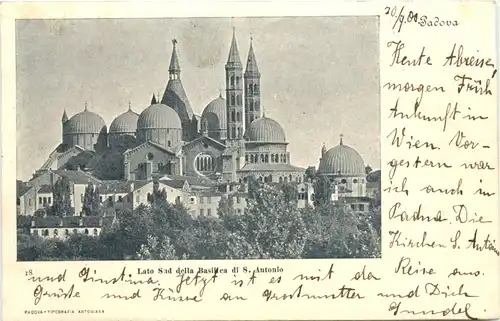 20/9.00
Padova
Heute Abreise,
morgen Früh
Ankunft in
Wien. Vor-
gestern war
ich auch in
Padua. Die
Kirchen S. Antonio
und Giustina. Jetzt ist es mit der Reise aus.
Lato Sud della Basilica di S. Antonio
18.
Grüße und Küsse an Großmutter und Dich
Gundel.
PADOVA - TIPOGRAFIA ANTONIANA